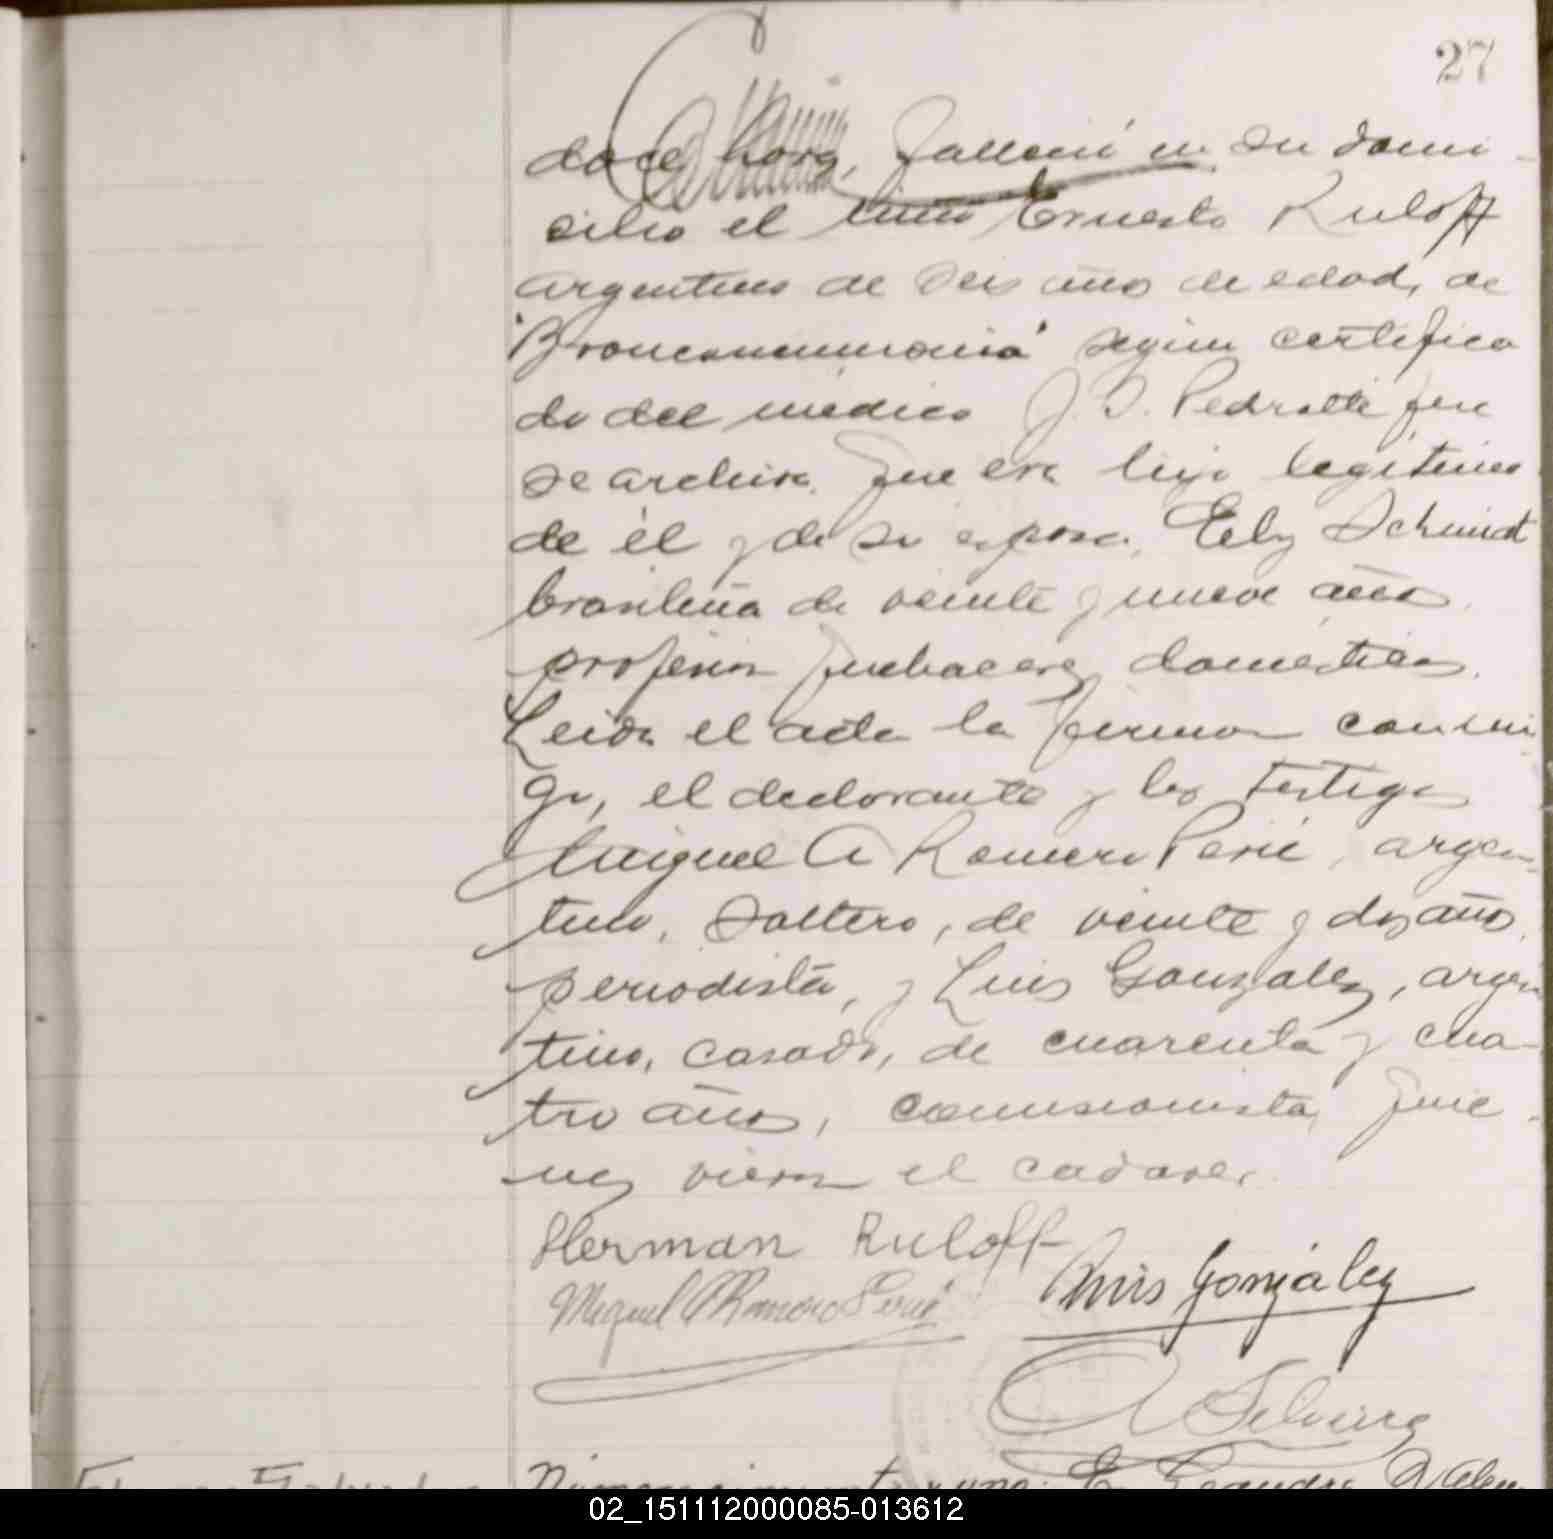 27
doce horas, falleció en su domi-
cilio el niño Ernesto Ruloff
argentino de seis años de edad, de
"Bronconeumonia" según certifica
do del médico J. J. Pedrotti que
se archiva. Que era hijo legítimo
de él y de su esposa, Elly Schmidt
brasileña de veinte y nueve años
profesión quehaceres domésticos.
Leida el acta la firman conmi
go, el declarante y los testigos
Miguel A Romero Perié, argen-
tino, soltero, de veinte y dos años,
periodista, y Luis Gonzalez, argen
tino, casado, de cuarenta y cua-
tro años, comisionista, quie-
nes vieron el cadaver.
Herman Ruloff
Miguel A Romero Perié
Luis González
Número cincuenta y uno. En Leandro N. Alem
02_151112000085-013612